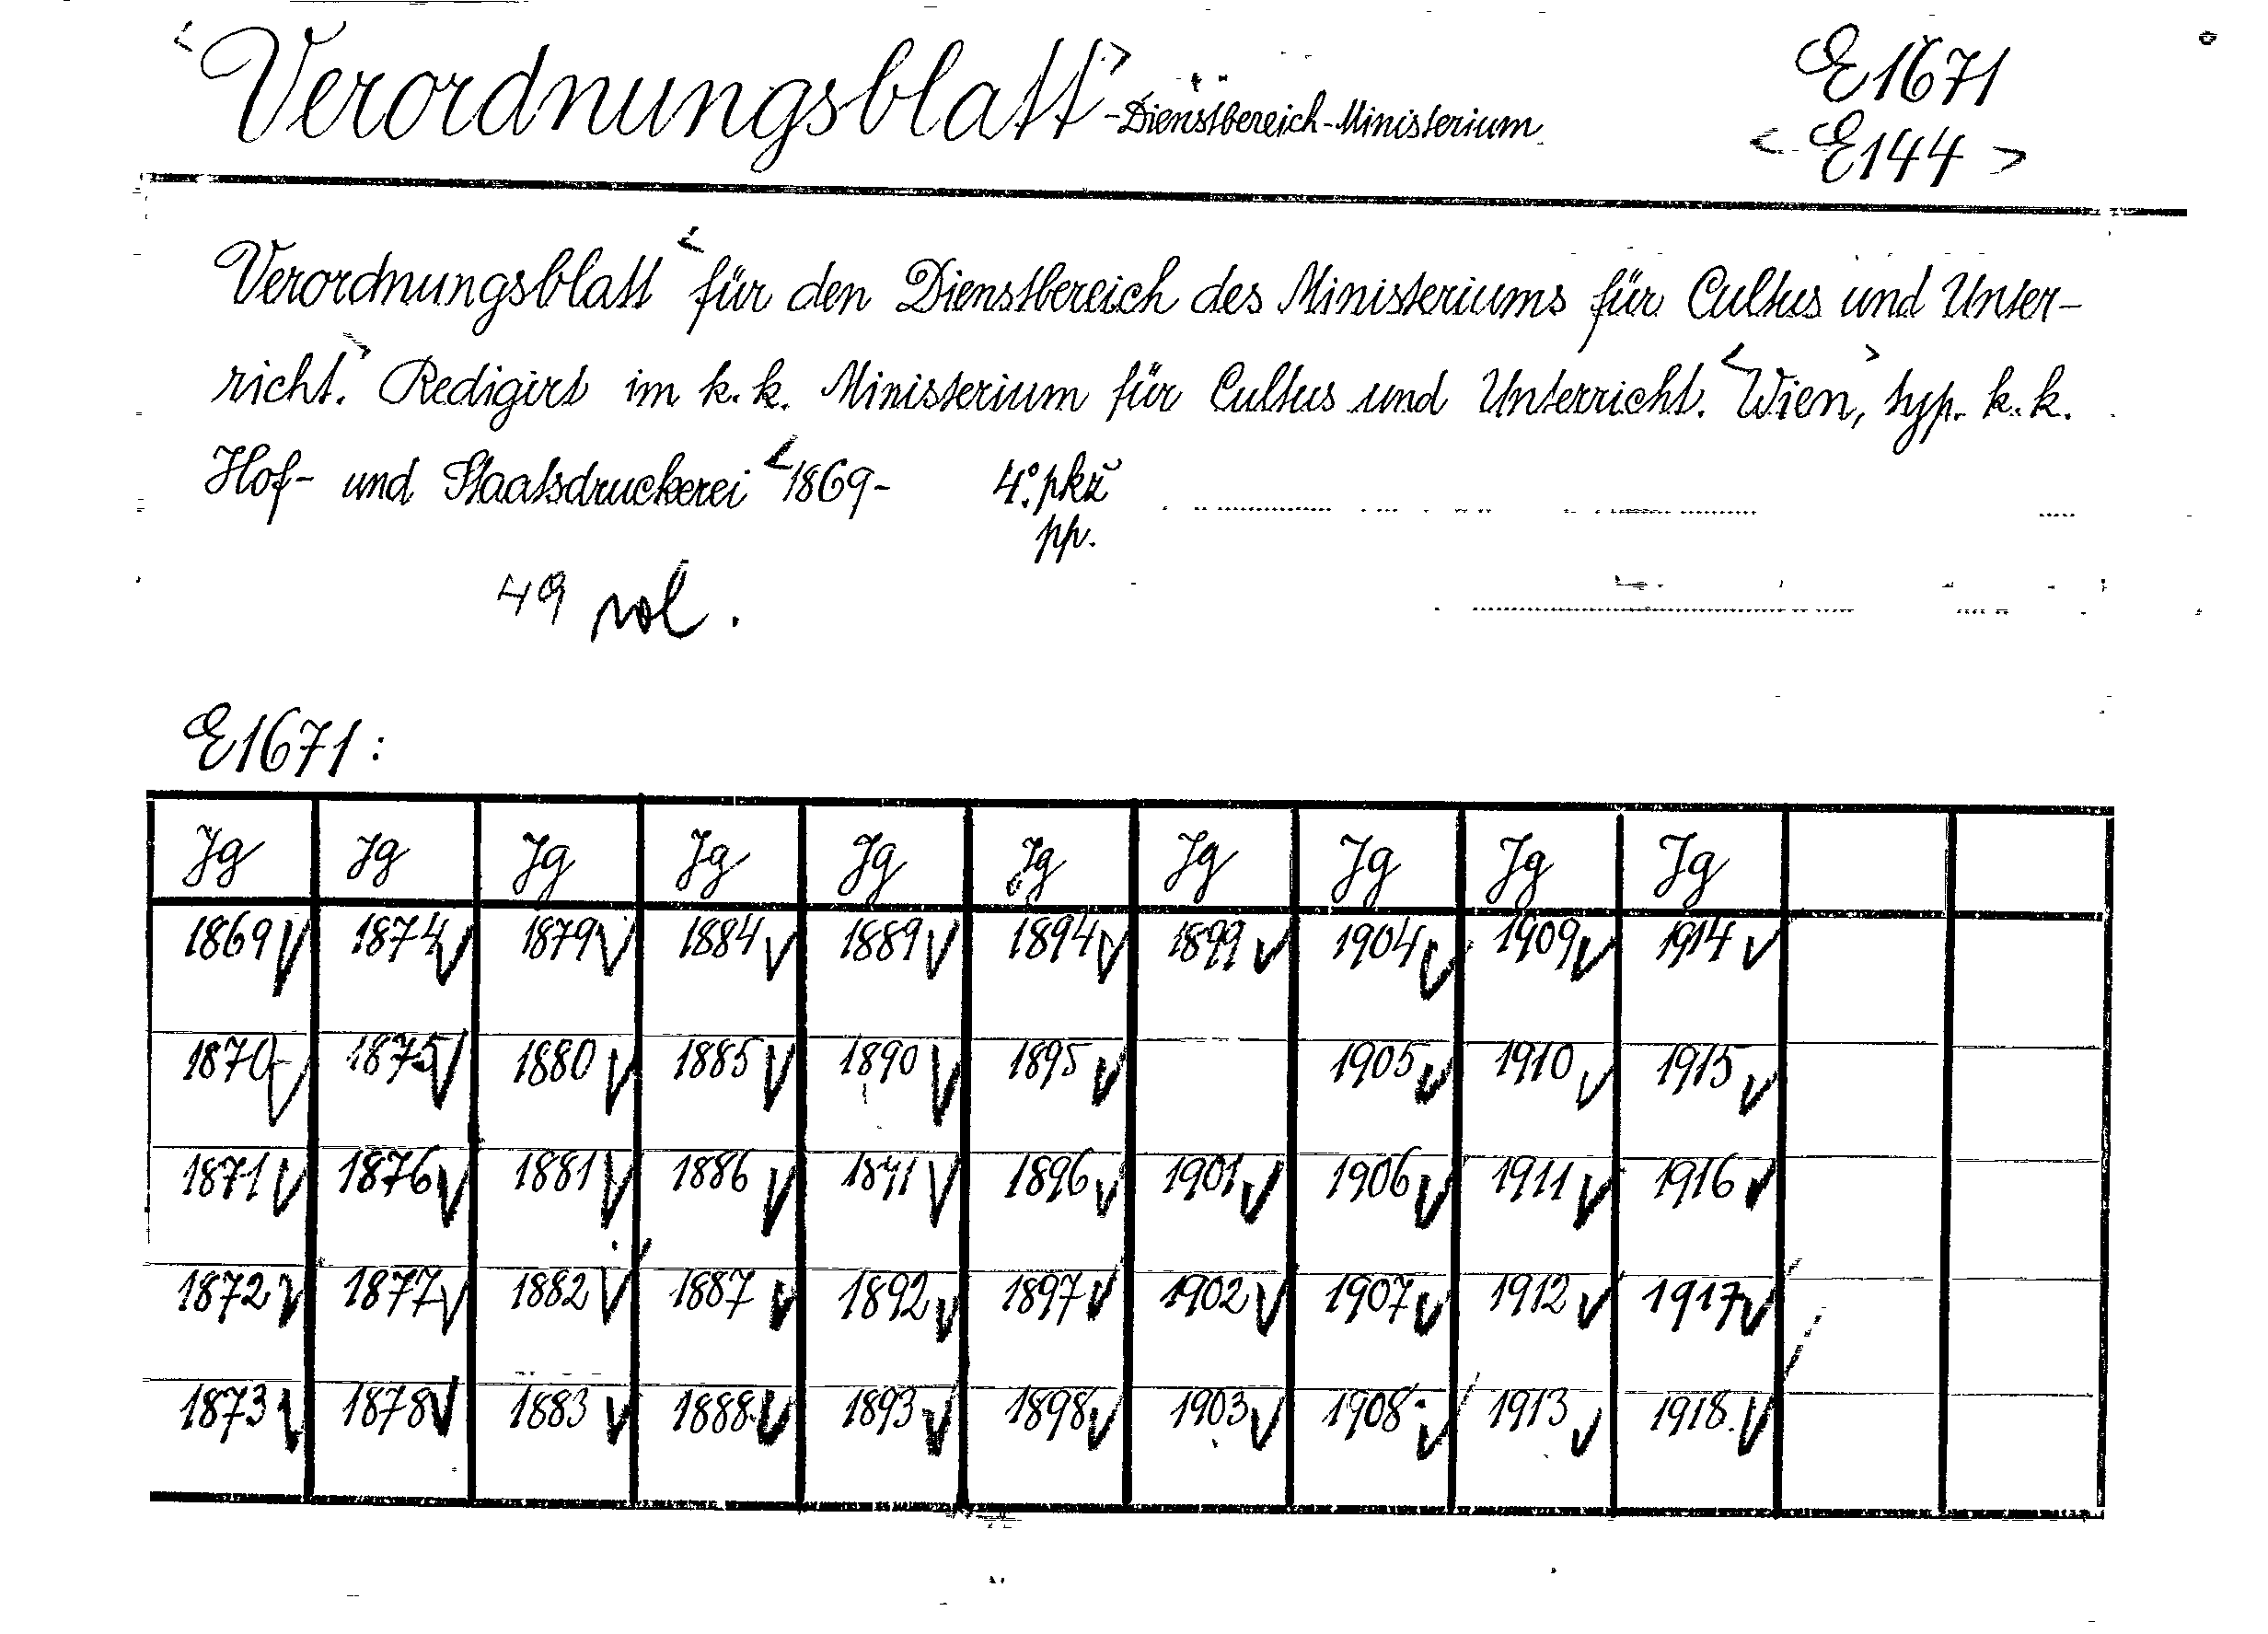 <Verordnungsblatt>-Dienstbereich-Ministerium
E1671
<E144>
Verordnungsblatt <für den Dienstbereich des Ministeriums für Cultus und Unter-
richt.> Redigirt im k. k. Ministerium für Cultus und Unterricht. <Wien,> typ. k. k.
Hof- und Staatsdruckerei <1869- 4° pkž
pp.
49 vol.
E1671:
Jg Jg Jg Jg Jg Jg Jg Jg Jg Jg
1869 V 1874 V 1879 V 1884 V 1889 V 1894 V 1899 V 1904 V 1909 V 1914 V
1870 V 1875 V 1880 V 1885 V 1890 V 1895 V 1905 V 1910 V 1915 V
1871 V 1876 V 1881 V 1886 V 1891 V 1896 V 1901 V 1906 V 1911 V 1916 V
1872 V 1877 V 1882 V 1887 V 1892 V 1897 V 1902 V 1907 V 1912 V 1917 V
1873 V 1878 V 1883 V 1888 V 1893 V 1898 V 1903 V 1908 V 1913 V 1918 V